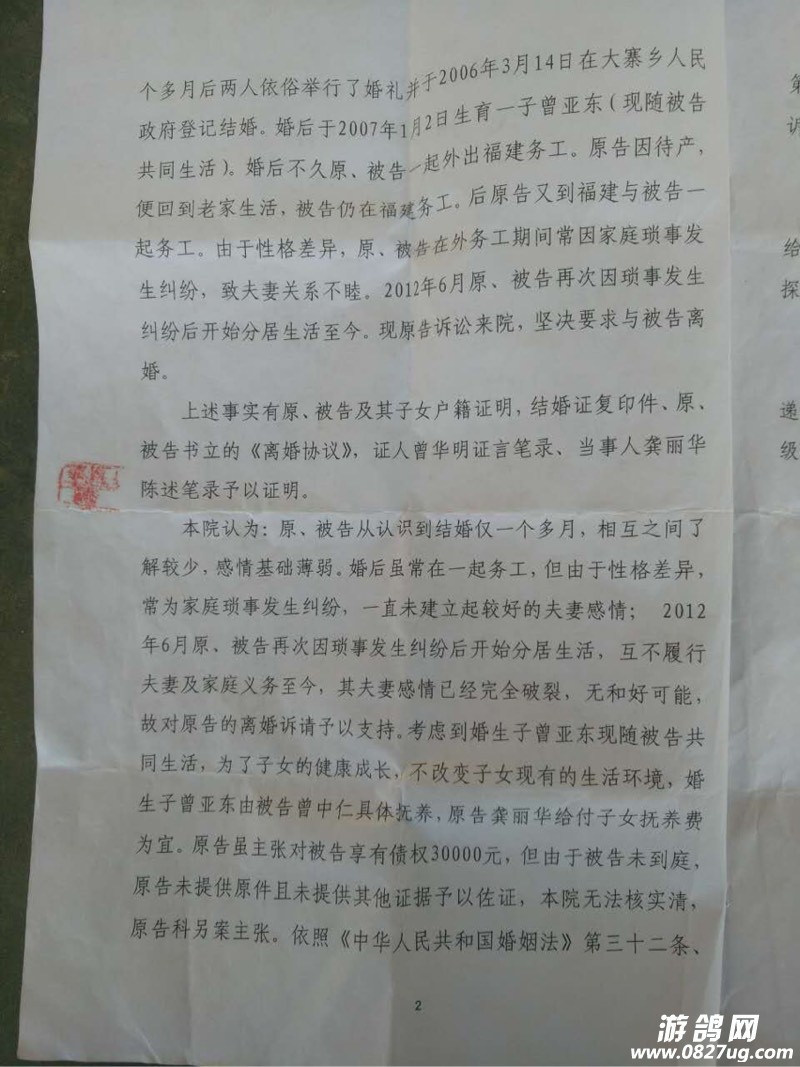 个多月后两人依俗举行了婚礼并于2006年3月14日在大寨乡人民
政府登记结婚。婚后于2007年1月2日生育一子曾亚东(现随被告
共同生活)。婚后不久原、被告一起外出福建务工。原告因待产,
便回到老家生活,被告仍在福建务工。后原告又到福建与被告一
起务工。由于性格差异,原、被告在外务工期间常因家庭琐事发
生纠纷,致夫妻关系不睦。2012年6月原、被告再次因琐事发生
纠纷后开始分居生活至今。现原告诉讼来院,坚决要求与被告离
婚。
上述事实有原、被告及其子女户籍证明,结婚证复印件、原、
被告书立的《离婚协议》,证人曾华明证言笔录、当事人龚丽华
陈述笔录予以证明。
本院认为:原、被告从认识到结婚仅一个多月,相互之间了
解较少,感情基础薄弱。婚后虽常在一起务工,但由于性格差异,
常为家庭琐事发生纠纷,一直未建立起较好的夫妻感情; 2012
年6月原、被告再次因琐事发生纠纷后开始分居生活,互不履行
夫妻及家庭义务至今,其夫妻感情已经完全破裂,无和好可能,
故对原告的离婚诉请予以支持。考虑到婚生子曾亚东现随被告共
同生活,为了子女的健康成长,不改变子女现有的生活环境,婚
生子曾亚东由被告曾中仁具体抚养,原告龚丽华给付子女抚养费
为宜。原告虽主张对被告享有债权30000元,但由于被告未到庭,
原告未提供原件且未提供其他证据予以佐证,本院无法核实清,
原告科另案主张。依照《中华人民共和国婚姻法》第三十二条、
2
第
诉
给
探
递
级
游鸽网
www.0827ug.com